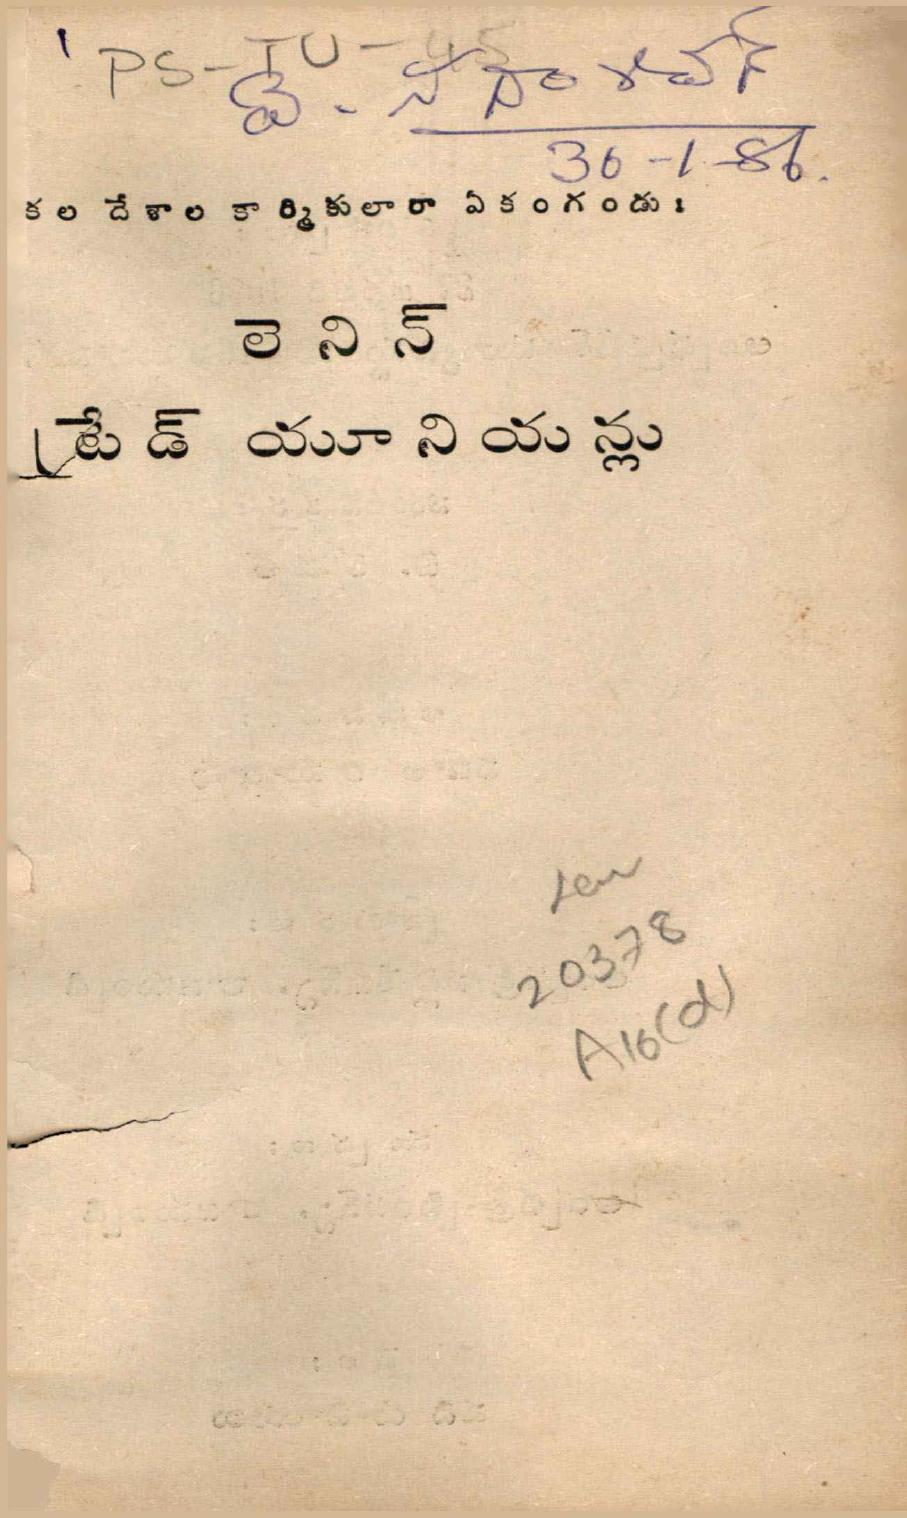 PS-TU-45
30-1-86.
కల దేశాల కార్మికులారా ఏకంగండు!
లెనిన్
ట్రేడ్ యూనియన్లు
20378
A16(d)